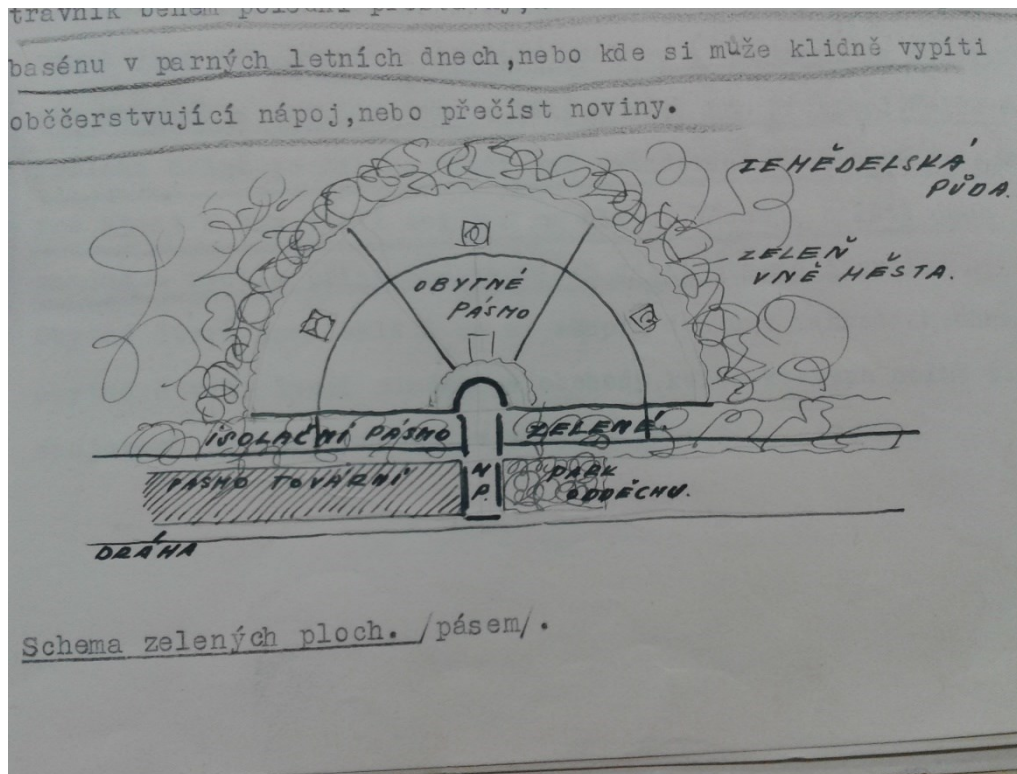 trávník během polední
basénu v parných letních dnech,nebo kde si může klidně vypíti
obččerstvující nápoj,nebo přečíst noviny.
ZEMĚDELSKÁ
PŮDA.
ZELEŇ
VNĚ MĚSTA.
OBYTNÉ
PÁSMO
ISOLAČNÍ PÁSMO ZELENÉ.
PÁSMO TOVÁRNÍ
N
P.
PARK
ODDĚCHU.
DRÁHA
Schema zelených ploch. /pásem/.